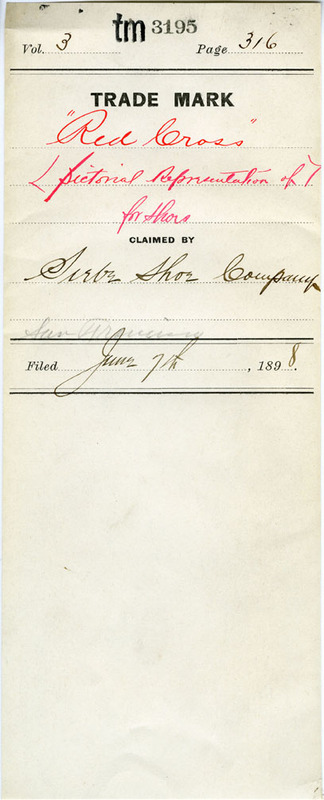 tm 3195
Vol. 3 Page 316
TRADE MARK
"Red Cross"
(pictorial Representation of)
for Shoes
CLAIMED BY
Siebe Shoe Company
San Francisco
Filed June 7th, 1898.